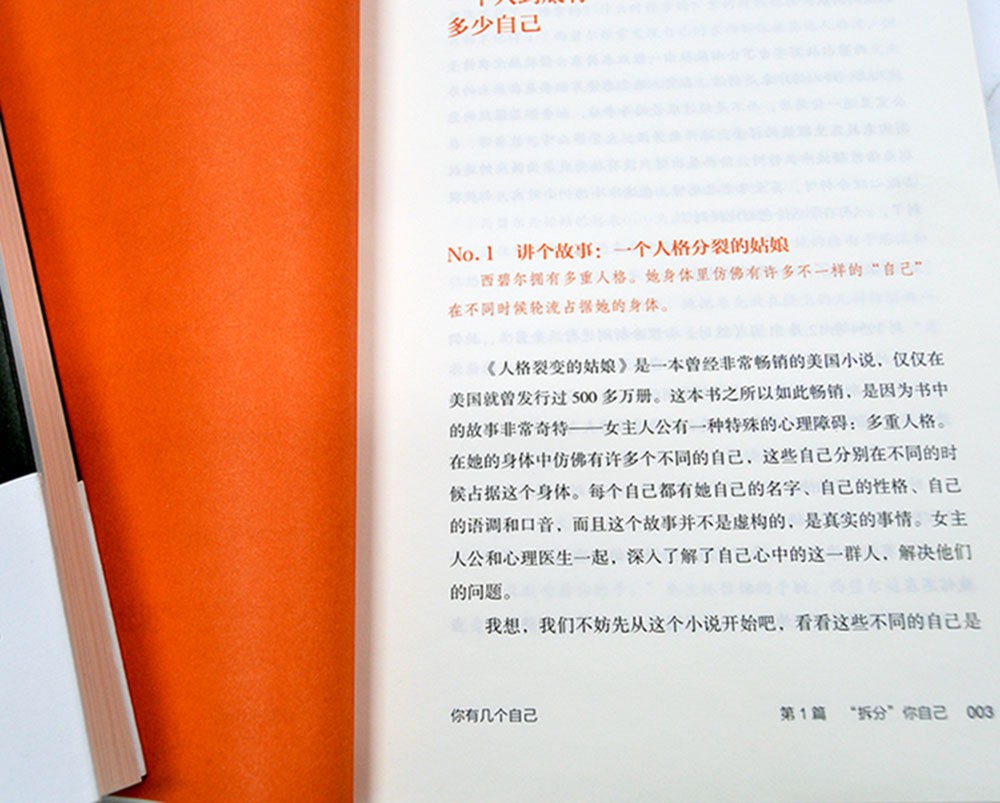 多少自己
No. 1 讲个故事：一个人格分裂的姑娘
西碧尔拥有多重人格。她身体里仿佛有许多不一样的“自己”
在不同时候轮流占据她的身体。
《人格裂变的姑娘》是一本曾经非常畅销的美国小说，仅仅在
美国就曾发行过 500 多万册。这本书之所以如此畅销，是因为书中
的故事非常奇特——女主人公有一种特殊的心理障碍：多重人格。
在她的身体中仿佛有许多个不同的自己，这些自己分别在不同的时
候占据这个身体。每个自己都有她自己的名字、自己的性格、自己
的语调和口音，而且这个故事并不是虚构的，是真实的事情。女主
人公和心理医生一起，深入了解了自己心中的这一群人，解决他们
的问题。
我想，我们不妨先从这个小说开始吧，看看这些不同的自己是
你有几个自己 第 1 篇 “拆分”你自己 003